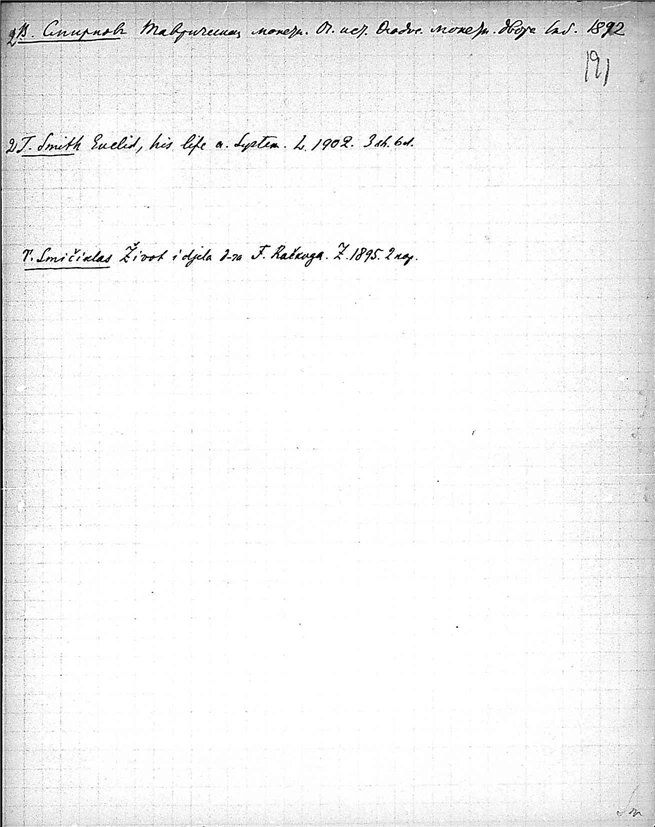 В. Смирновъ Таврическая монет. От. ист. монетн. двора Спб. 1892
191
2) T. Smith Euclid, his life a. System. L. 1902. 3 sh. 6 d.
T. Smičiklas Život i djela d-ra F. Račkoga. Z. 1895. 2
Sm